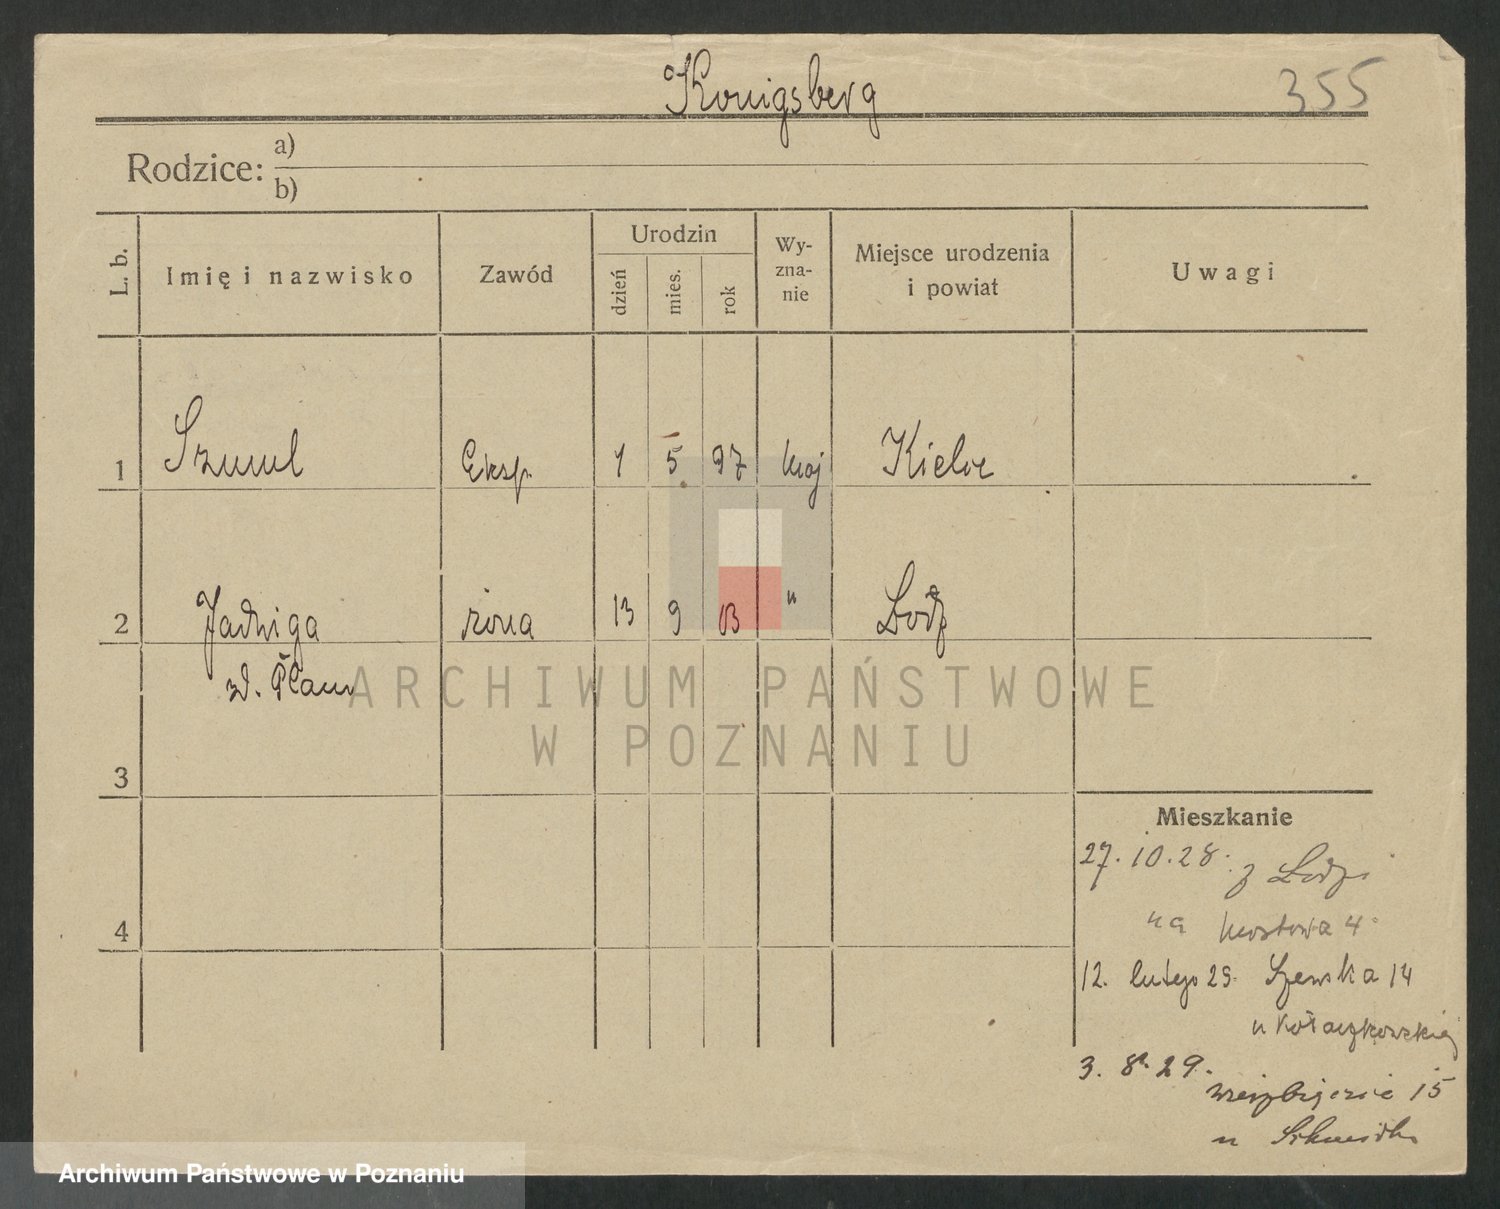 Konigsberg
355
Rodzice: a)
b)
L. b. Imię i nazwisko Zawód Urodzin dzień mies. rok Wy-zna-nie Miejsce urodzenia i powiat Uwagi
1 Szmul Eksp. 1 5 97 moj Kielce
2 Jadwiga żona 13 9 03 " Łódź
zd.
3
4
Mieszkanie
27. 10. 28. z Łodzi
na Mostowa 4
12. lutego 29. Szewska 14
u Kołaczkowskiej
3. 8. 29.
15
u Schmidta
ARCHIWUM PAŃSTWOWE
W POZNANIU
Archiwum Państwowe w Poznaniu